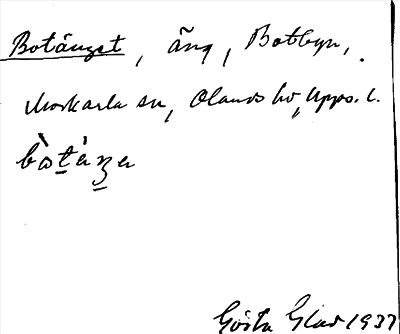 Botänget, äng, Botbyn,
Morkarla sn, Olands hd, Upps. l.
Gösta Glad 1937